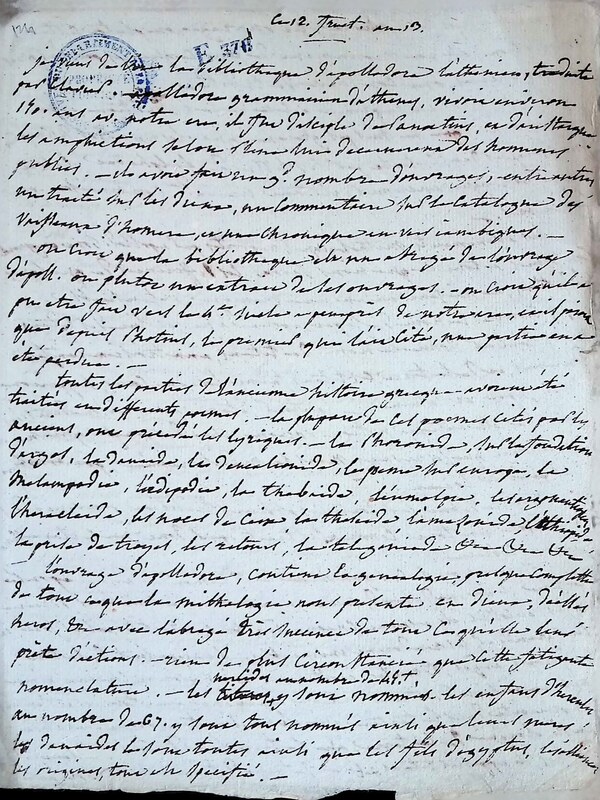 ce 12. fruct. an 13.
124
E 376
je viens de lire la bibliotheque d'apollodore l'athenien, traduite
par Clavier. - apollodore grammairien d'athenes, vivoit environ
150. ans av. notre ere, il fut disciple de Panetius, et d'aristarque
les amphictions selon Pline lui decernerent des honneurs
publics. - il avoit fait un gd. nombre d'ouvrages, entr'autres
un traité sur les dieux, un Commentaire sur le Catalogue des
Vaisseaux d'homere, et une Chronique en vers iambiques. -
on croit que la bibliotheque est un abregé de l'ouvrage
d'apoll. ou plutot un extrait de ses ouvrages. - on croit qu'il a
pu etre fait vers le siecle a peu près de notre ere, et il paroit
que depuis Photius, le premier qui l'ait Cité, une partie en a
eté perdue. -
toutes les parties de l'ancienne histoire grecque avoient été
traitées en differents poemes. - la plupart de ces poemes cités par les
anciens, ont précédé les lyriques. - la Phoronide, sur la fondation
d'argos, la danaide, la deucalionide, le poeme sur europe, la
Melampodie, l'oedipodie, la thebaide, l'eumolpie, les argonautiques
l'heracleide, les noces de Ceix la theseide l'amazonide,
la prise de troyes, les retours, la telegoniade &c &c &c
l'ouvrage d'apollodore, contient la genealogie, presque complette
de tout ce que la mithologie nous presente en dieux, déesses
heros, &c avec l'abregé très succinct de tout ce qu'elle leur
prête d'actions. - rien de plus circonstancié que cette fatigante
nereides au nombre de 45.
nomenclature. - les y sont nommées. les enfants d'hercule
au nombre de 67. y sont tous nommés ainsi que leurs meres
les danaides le sont toutes ainsi que les fils d'egyptus, les alliances
les origines, tout est specifié. -